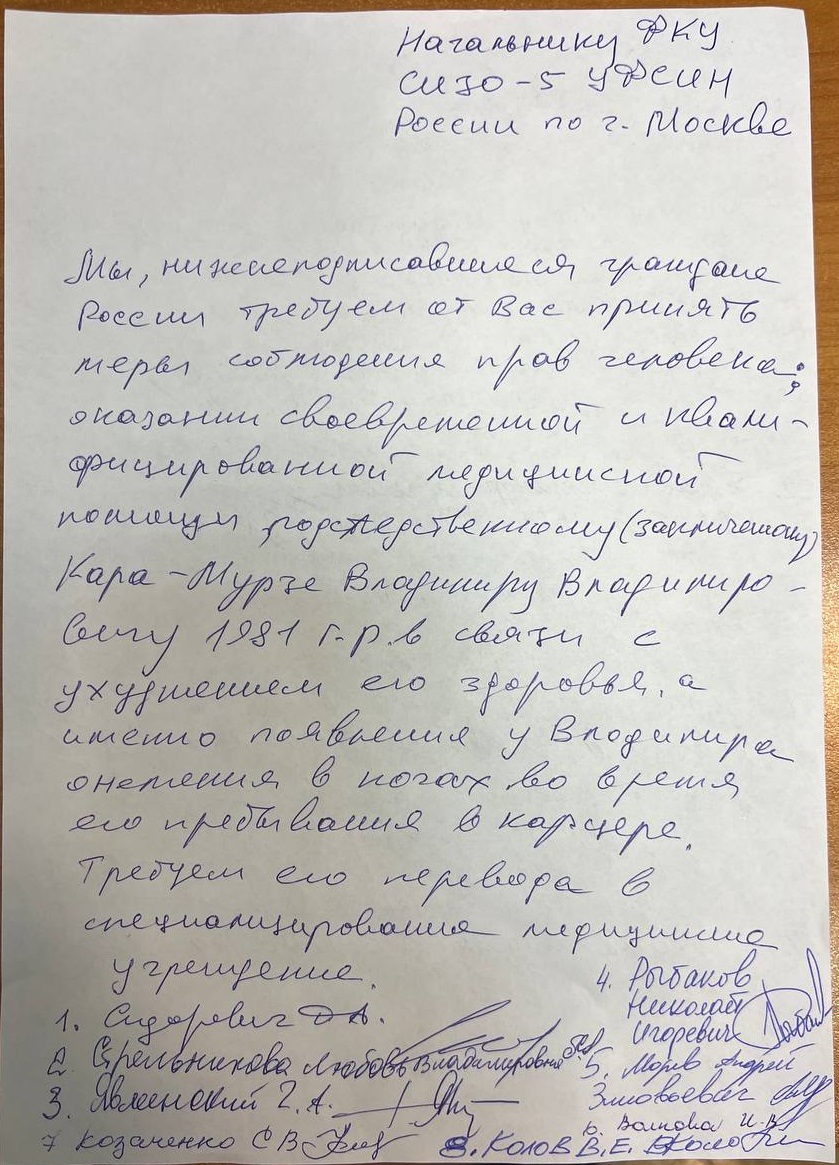 Начальнику ФКУ
СИЗО-5 УФСИН
России по г. Москве
Мы, нижеподписавшиеся граждане
России требуем от Вас принять
меры соблюдения прав человека;
оказании своевременной и квали-
фицированной медицинской
помощи подследственному (заключенному)
Кара-Мурзе Владимиру Владимиро-
вичу 1981 г.р. в связи с
ухудшением его здоровья, а
именно появления у Владимира
онемения в ногах во время
его пребывания в карцере.
Требуем его перевода в
специализирование медицинские
учреждение.
1. Сидорович Д.А.
2. Стрельникова Любовь Владимировна
3. Явлинский Г.А.
4. Рыбаков
Николай
Игоревич
5. Морев Андрей
Зиновьевич
6. Волкова И.В.
7 Козаченко С В
8. Колов В.Е.